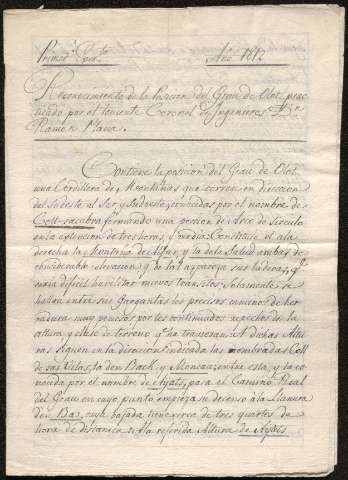 Primer Exer.to Año 1812
Reconocimiento de la Posicion del Grau de Olot, prac
ticado por el teniente Coronel de Ingenieros D.n
Ramon Plana.
Contiene la posicion del Grau de Olot,
una Cordillera de Montañas que corren en direccion
del Sudeste al Sur y Sudoeste, conocidas por el nombre de
Coll-sacabra formando una porcion de Arco de Circulo
en la extencion de tres horas, y media. Constituye el ala
derecha la Montaña de y la de la Salud ambas de
considerable elevacion y de tal aspereza sus laderas, q.e
seria dificil havilitar nuevos transitos, solamente se
hallan entre sus Gargantas los precisos caminos de her
radura muy penosos por los continuados repechos de la
altura y clase de terreno q.e ha traversan. A dichas Altu
ras siguen en la direccion indicada las nombradas Coll
de sas Vilas, la den Bach, y esta, y la co
nocida por el nombre de Ayats, pasa el Camino Real
del Grau en cuyo punto empieza su decenso à la Llanura
den Bas, cuya bajada tiene cerca de tres quartos de
hora de distancia. A la referida Altura de Ayats